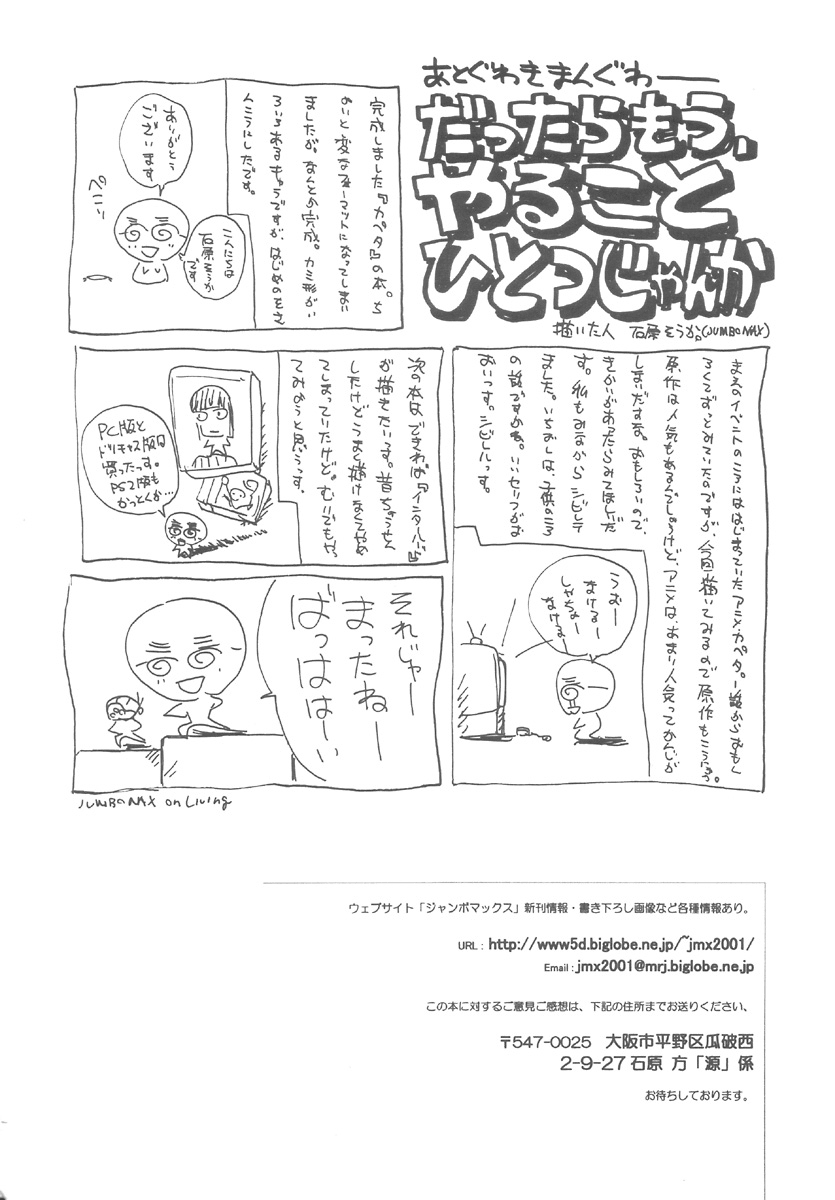 あとぐわきまんぐわー
だったらもう、
やること
ひとつじゃんか
描いた人 石原そうか。(JUMBOMAX)
完成しました『カペタ』の本。ち
ょいと変なフォーマットになってしまい
ましたが。なんとか完成。カミ形がい
ろいろあるキャラですが、はじめのモさ
んこうにしたです。
ありがとう
ございます
こんにちは
石原そうか
です
ペこーり
まえのイベントのころにははじまっていたアニメ・カペタ。一話からおもし
ろくてずっとみていたのですが、今回描いてみるので原作もこうにゅう。
原作は人気もあるんでしょうけど、アニメは、あまり人気ってかんじが
しまいだすな。おもしろいので、
きかいがあったらみてほしいだ
す。私もみながらシビレテ
ました。いちおしは、子供のころ
の話ですかね。いいセリフがお
おいっす。シビレルっす。
うおー
まけるー
しゃちょー
なけるー
次の本は、できれば『インタールード』
が描きたいっす。昔ちょうせん
したけどうまく描けなくてやめ
てしまっていたけど。むりでもやっ
てみようと思うっす。
PC版と
ドリキャス版は
買ったっす。
PS2版も
かっとくか…
それじゃー
まったねー
ばっははーい
JUMBOMAX on Living
ウェブサイト「ジャンボマックス」新刊情報・書き下ろし画像など各種情報あり。
URL : http://www5d.biglobe.ne.jp/~jmx2001/
Email : jmx2001@mrj.biglobe.ne.jp
この本に対するご意見ご感想は、下記の住所までお送りください、
〒547-0025 大阪市平野区瓜破西
2-9-27 石原 方「源」係
お待ちしております。